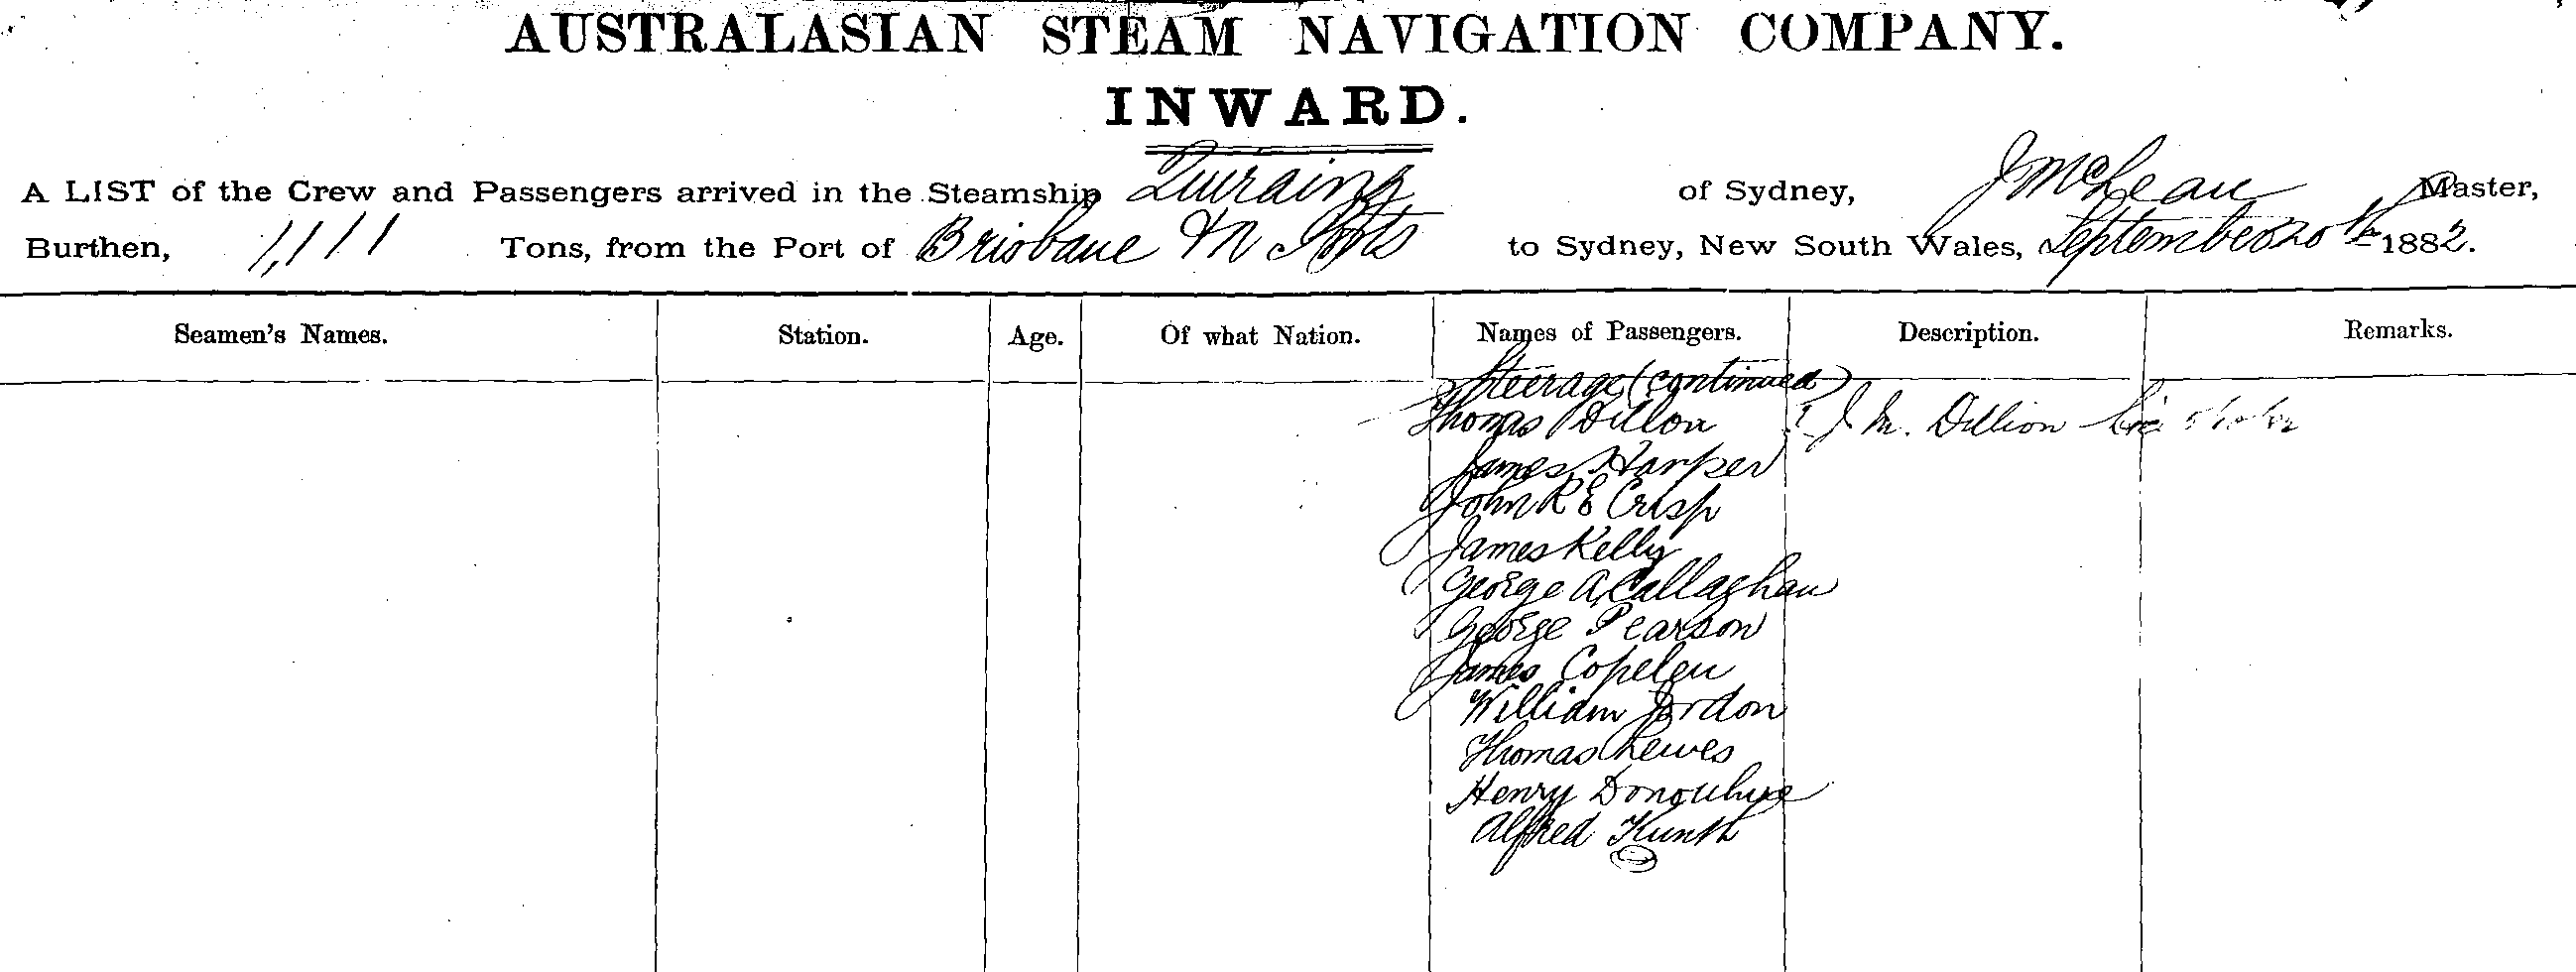 AUSTRALASIAN STEAM NAVIGATION COMPANY.
INWARD.
A LIST of the Crew and Passengers arrived in the Steamship Quiraing of Sydney, J McLean Master,
Burthen, 1,111 Tons, from the Port of Brisbane & N Ports to Sydney, New South Wales, September 20th 1882.
Seamen's Names. Station. Age. Of what Nation. Names of Passengers. Description. Remarks.
Steerage (continued)
Thomas Dillon J M. Dillion
James Harper
John R E Crisp
James Kelly
George A Callaghan
George Pearson
James Copelen
William Jordon
Thomas Lewes
Henry Donouhue
Alfred Kunth